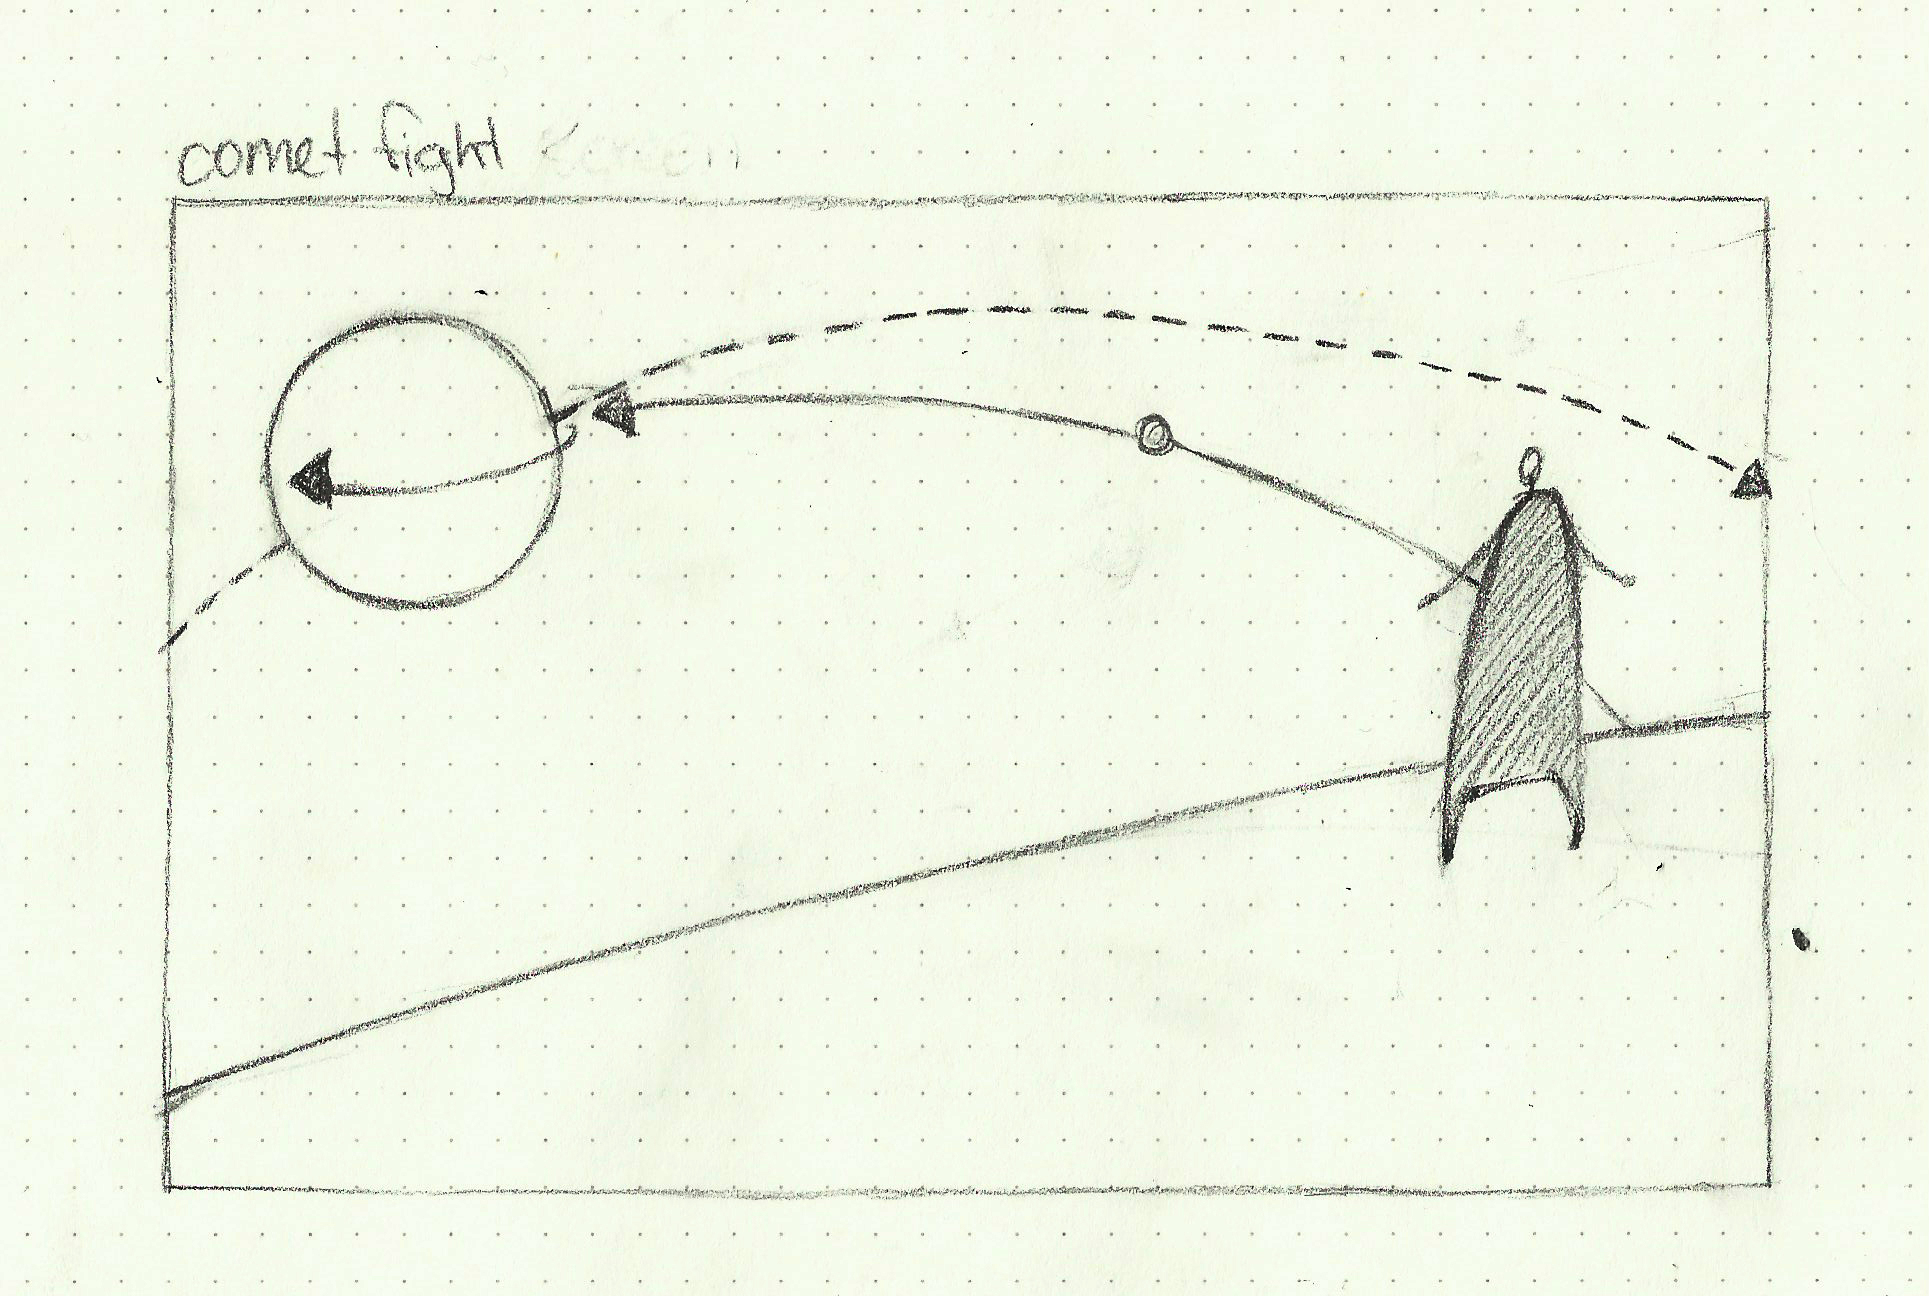 comet fight screen